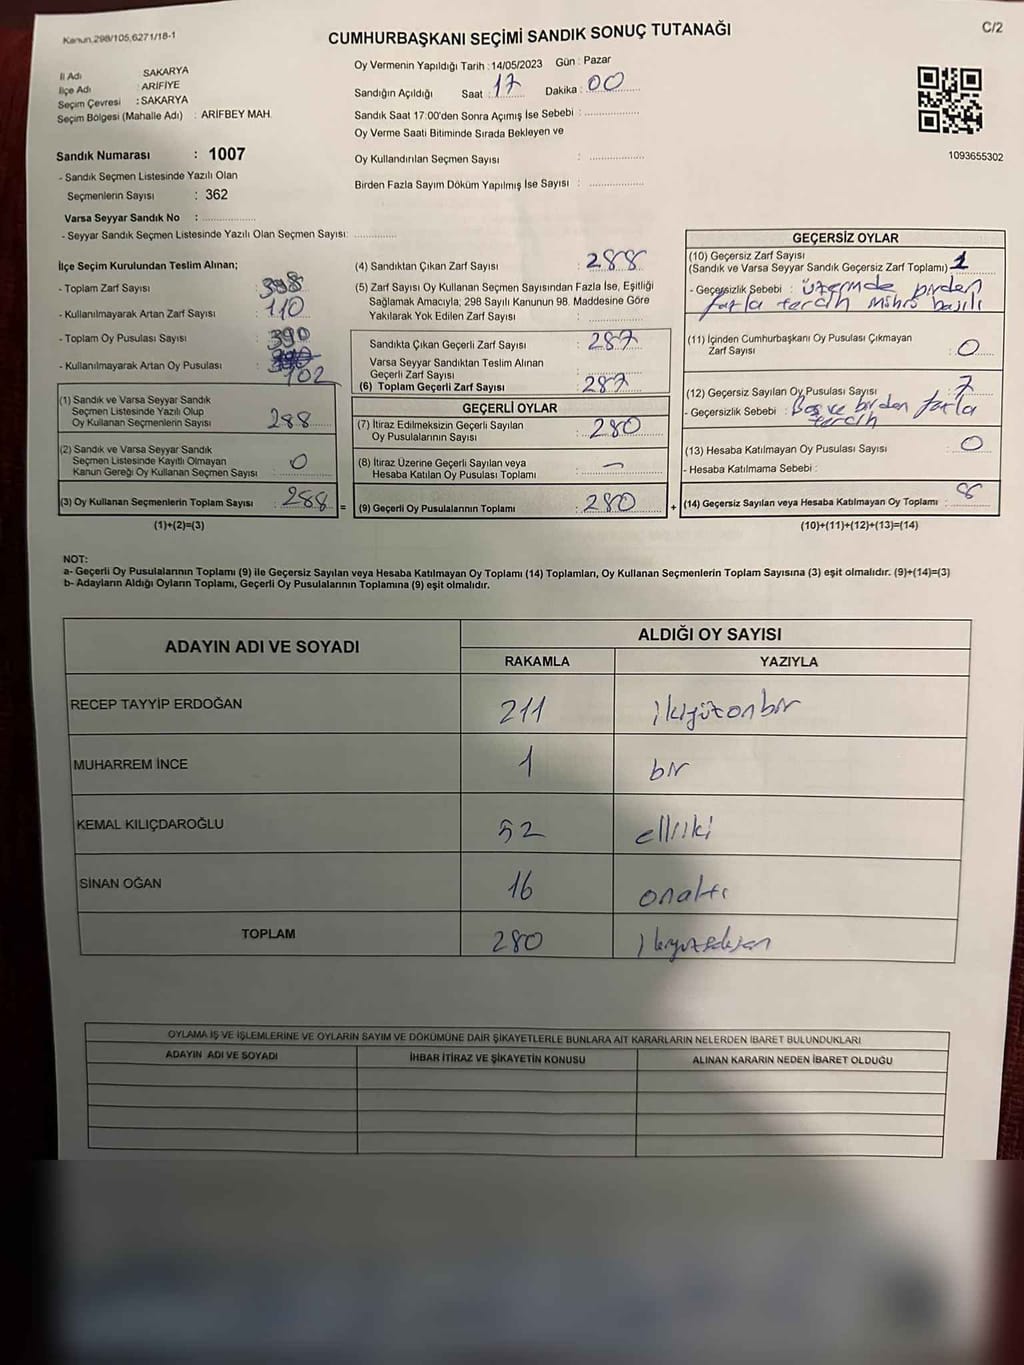 Kanun.298/105,6271/18-1
CUMHURBAŞKANI SEÇİMİ SANDIK SONUÇ TUTANAĞI
C/2
İl Adı : SAKARYA
İlçe Adı : ARİFİYE
Seçim Çevresi : SAKARYA
Seçim Bölgesi (Mahalle Adı) : ARİFBEY MAH.
Sandık Numarası : 1007
- Sandık Seçmen Listesinde Yazılı Olan
Seçmenlerin Sayısı : 362
Varsa Seyyar Sandık No :
- Seyyar Sandık Seçmen Listesinde Yazılı Olan Seçmen Sayısı:
Oy Vermenin Yapıldığı Tarih : 14/05/2023 Gün : Pazar
Sandığın Açıldığı Saat : 17 Dakika : 00
Sandık Saat 17:00'den Sonra Açımış İse Sebebi :
Oy Verme Saati Bitiminde Sırada Bekleyen ve
Oy Kullandırılan Seçmen Sayısı :
Birden Fazla Sayım Döküm Yapılmış İse Sayısı :
1093655302
İlçe Seçim Kurulundan Teslim Alınan;
- Toplam Zarf Sayısı : 398
- Kullanılmayarak Artan Zarf Sayısı : 110
- Toplam Oy Pusulası Sayısı : 390
- Kullanılmayarak Artan Oy Pusulası : 102
(1) Sandık ve Varsa Seyyar Sandık
Seçmen Listesinde Yazılı Olup
Oy Kullanan Seçmenlerin Sayısı 288
(2) Sandık ve Varsa Seyyar Sandık
Seçmen Listesinde Kayıtlı Olmayan
Kanun Gereği Oy Kullanan Seçmen Sayısı : 0
(3) Oy Kullanan Seçmenlerin Toplam Sayısı : 288 =
(1)+(2)=(3)
(4) Sandıktan Çıkan Zarf Sayısı : 288
(5) Zarf Sayısı Oy Kullanan Seçmen Sayısından Fazla İse, Eşitliği
Sağlamak Amacıyla; 298 Sayılı Kanunun 98. Maddesine Göre
Yakılarak Yok Edilen Zarf Sayısı :
Sandıkta Çıkan Geçerli Zarf Sayısı : 287
Varsa Seyyar Sandıktan Teslim Alınan
Geçerli Zarf Sayısı :
(6) Toplam Geçerli Zarf Sayısı : 287
GEÇERLİ OYLAR
(7) İtiraz Edilmeksizin Geçerli Sayılan
Oy Pusulalarının Sayısı : 280
(8) İtiraz Üzerine Geçerli Sayılan veya
Hesaba Katılan Oy Pusulası Toplamı : -
(9) Geçerli Oy Pusulalarının Toplamı : 280 +
GEÇERSİZ OYLAR
(10) Geçersiz Zarf Sayısı
(Sandık ve Varsa Seyyar Sandık Geçersiz Zarf Toplamı) : 1
- Geçersizlik Sebebi : üzerinde birden
fazla tercih mührü basılı
(11) İçinden Cumhurbaşkanı Oy Pusulası Çıkmayan
Zarf Sayısı : 0
(12) Geçersiz Sayılan Oy Pusulası Sayısı : 7
- Geçersizlik Sebebi : Boş ve birden fazla
tercih
(13) Hesaba Katılmayan Oy Pusulası Sayısı : 0
- Hesaba Katılmama Sebebi :
(14) Geçersiz Sayılan veya Hesaba Katılmayan Oy Toplamı : 8
(10)+(11)+(12)+(13)=(14)
NOT:
a- Geçerli Oy Pusulalarının Toplamı (9) ile Geçersiz Sayılan veya Hesaba Katılmayan Oy Toplamı (14) Toplamları, Oy Kullanan Seçmenlerin Toplam Sayısına (3) eşit olmalıdır. (9)+(14)=(3)
b- Adayların Aldığı Oyların Toplamı, Geçerli Oy Pusulalarının Toplamına (9) eşit olmalıdır.
ADAYIN ADI VE SOYADI
ALDIĞI OY SAYISI
RAKAMLA YAZIYLA
RECEP TAYYİP ERDOĞAN 211 ikiyüzonbir
MUHARREM İNCE 1 bir
KEMAL KILIÇDAROĞLU 52 elliiki
SİNAN OĞAN 16 onaltı
TOPLAM 280 ikiyüzseksen
OYLAMA İŞ VE İŞLEMLERİNE VE OYLARIN SAYIM VE DÖKÜMÜNE DAİR ŞİKAYETLERLE BUNLARA AİT KARARLARIN NELERDEN İBARET BULUNDUKLARI
ADAYIN ADI VE SOYADI İHBAR İTİRAZ VE ŞİKAYETİN KONUSU ALINAN KARARIN NEDEN İBARET OLDUĞU